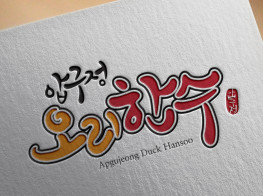 압구정
오리한수
Apgujeong Duck Hansoo